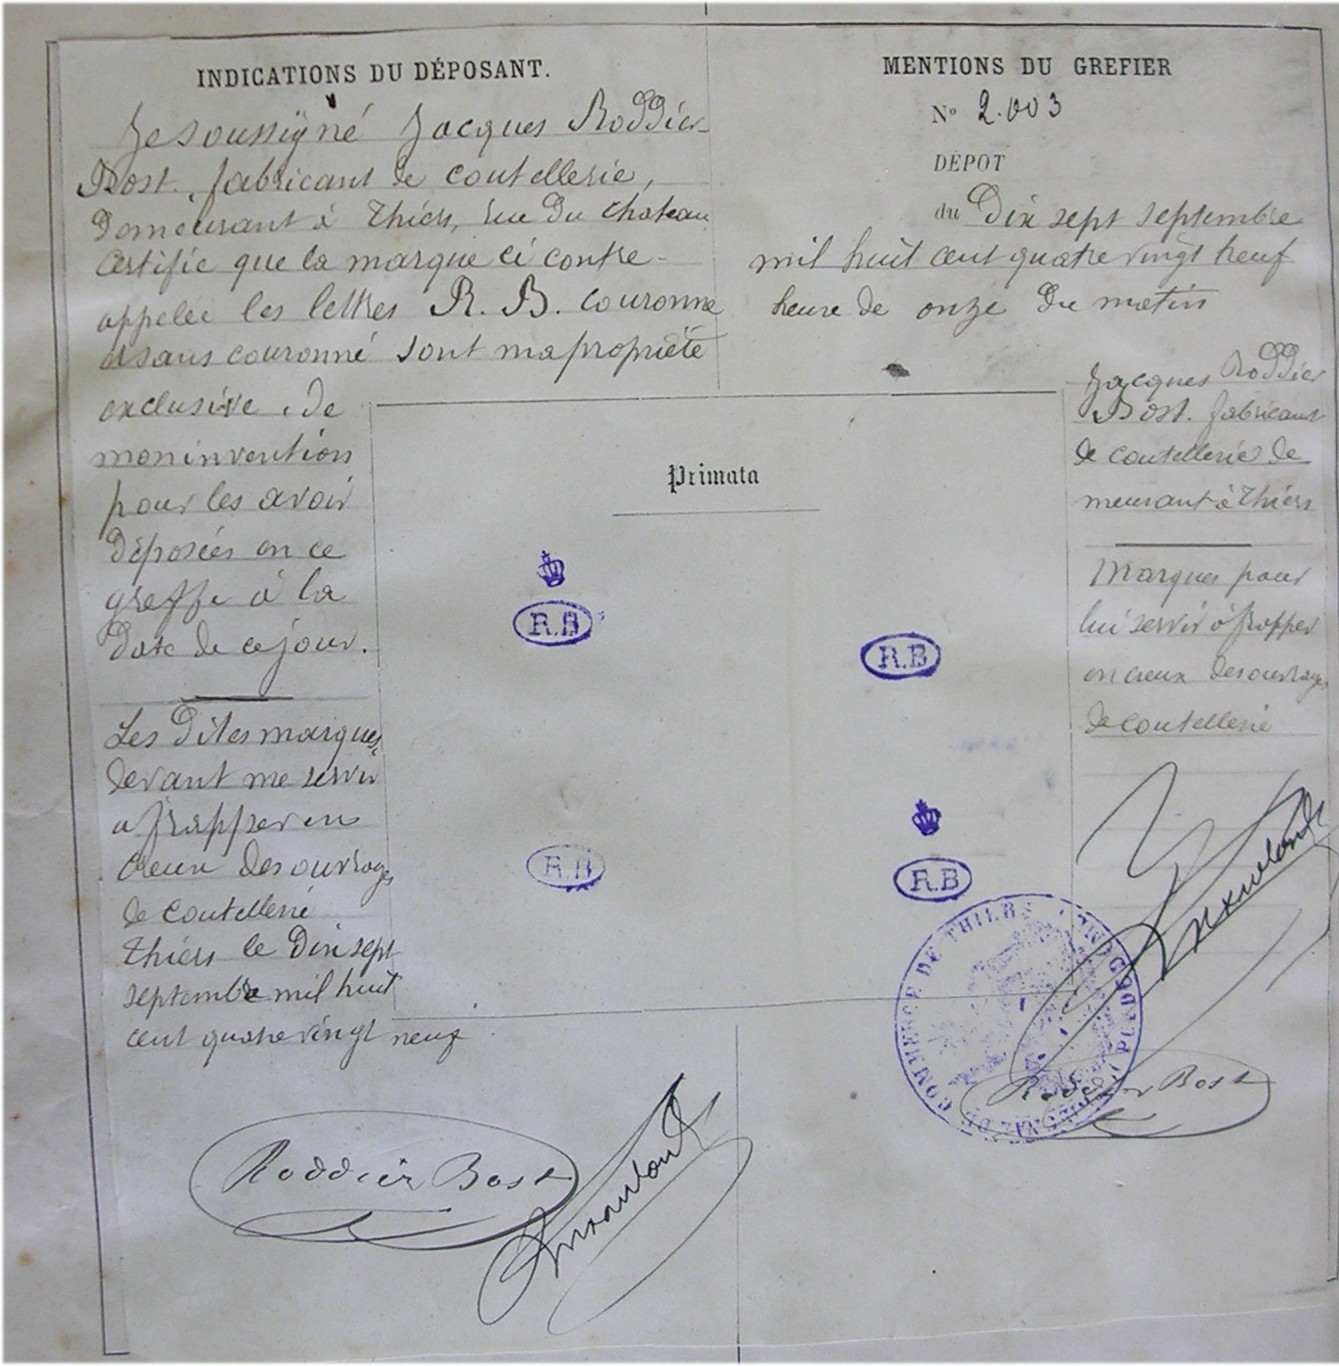 INDICATIONS DU DÉPOSANT.
Je soussigné Jacques Roddier
Bost. fabricant de coutellerie,
Demeurant à Thiers, rue Du Chateau
Certifie que la marque ci contre
appelée les lettres R. B. couronne
et sans couronné sont ma propriété
exclusive, de
mon invention
pour les avoir
Déposées en ce
greffe à la
Date de ce jour.
Les Dites marques
devant me servir
a frapper en
creux des ouvrages
de coutellerie
Thiers le Dix sept
septembre mil huit
cent quatre vingt neuf
Roddier Bost
MENTIONS DU GREFIER
No 2.003
DÉPOT
du Dix sept septembre
mil huit cent quatre vingt neuf
heure de onze Du matin
Jacques Roddier
Bost. fabricant
de coutellerie de
meurant à Thiers
Marques pour
lui servir à frapper
en creux des ouvrages
de coutellerie
Primata
R.B
R.B
R.B
R.B
COMMERCE DE THIERS
Roddier Bost